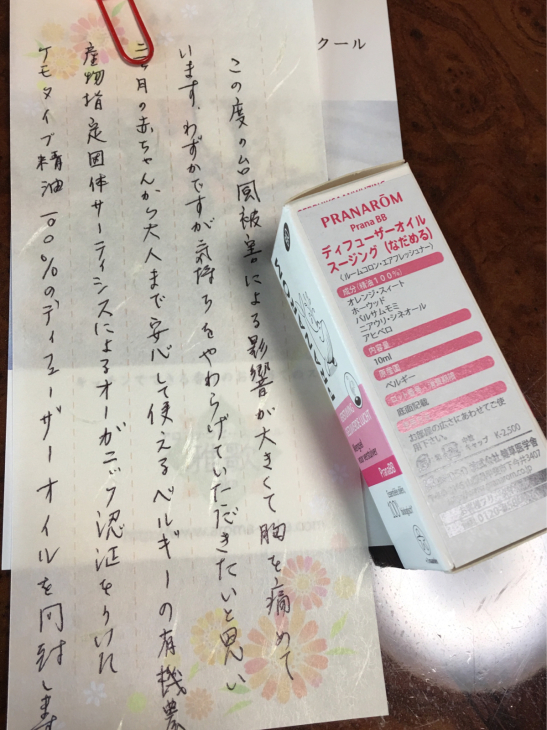 クール
この度の台風被害による影響が大きくて胸を痛めて
います、わずかですが気持ちをやわらげていただきたいと思い
二ヶ月の赤ちゃんから大人まで安心して使えるベルギーの有機農
産物指定団体サーティシスによるオーガニック認証をうけた
ケモタイプ精油一〇〇%のディフューザーオイルを同封します
PRANARŌM
Prana BB
ディフューザーオイル
スージング(なだめる)
(ルームコロン・エアフレッシュナー)
成分(精油100%)
オレンジ・スイート
ホーウッド
バルサムモミ
ニアウリ・シネオール
アヒベロ
内容量
10ml
原産国
ベルギー
底面記載
お部屋の広さにあわせてご使
用下さい。
キャップ K-2,500
健草医学舎
PranaBB